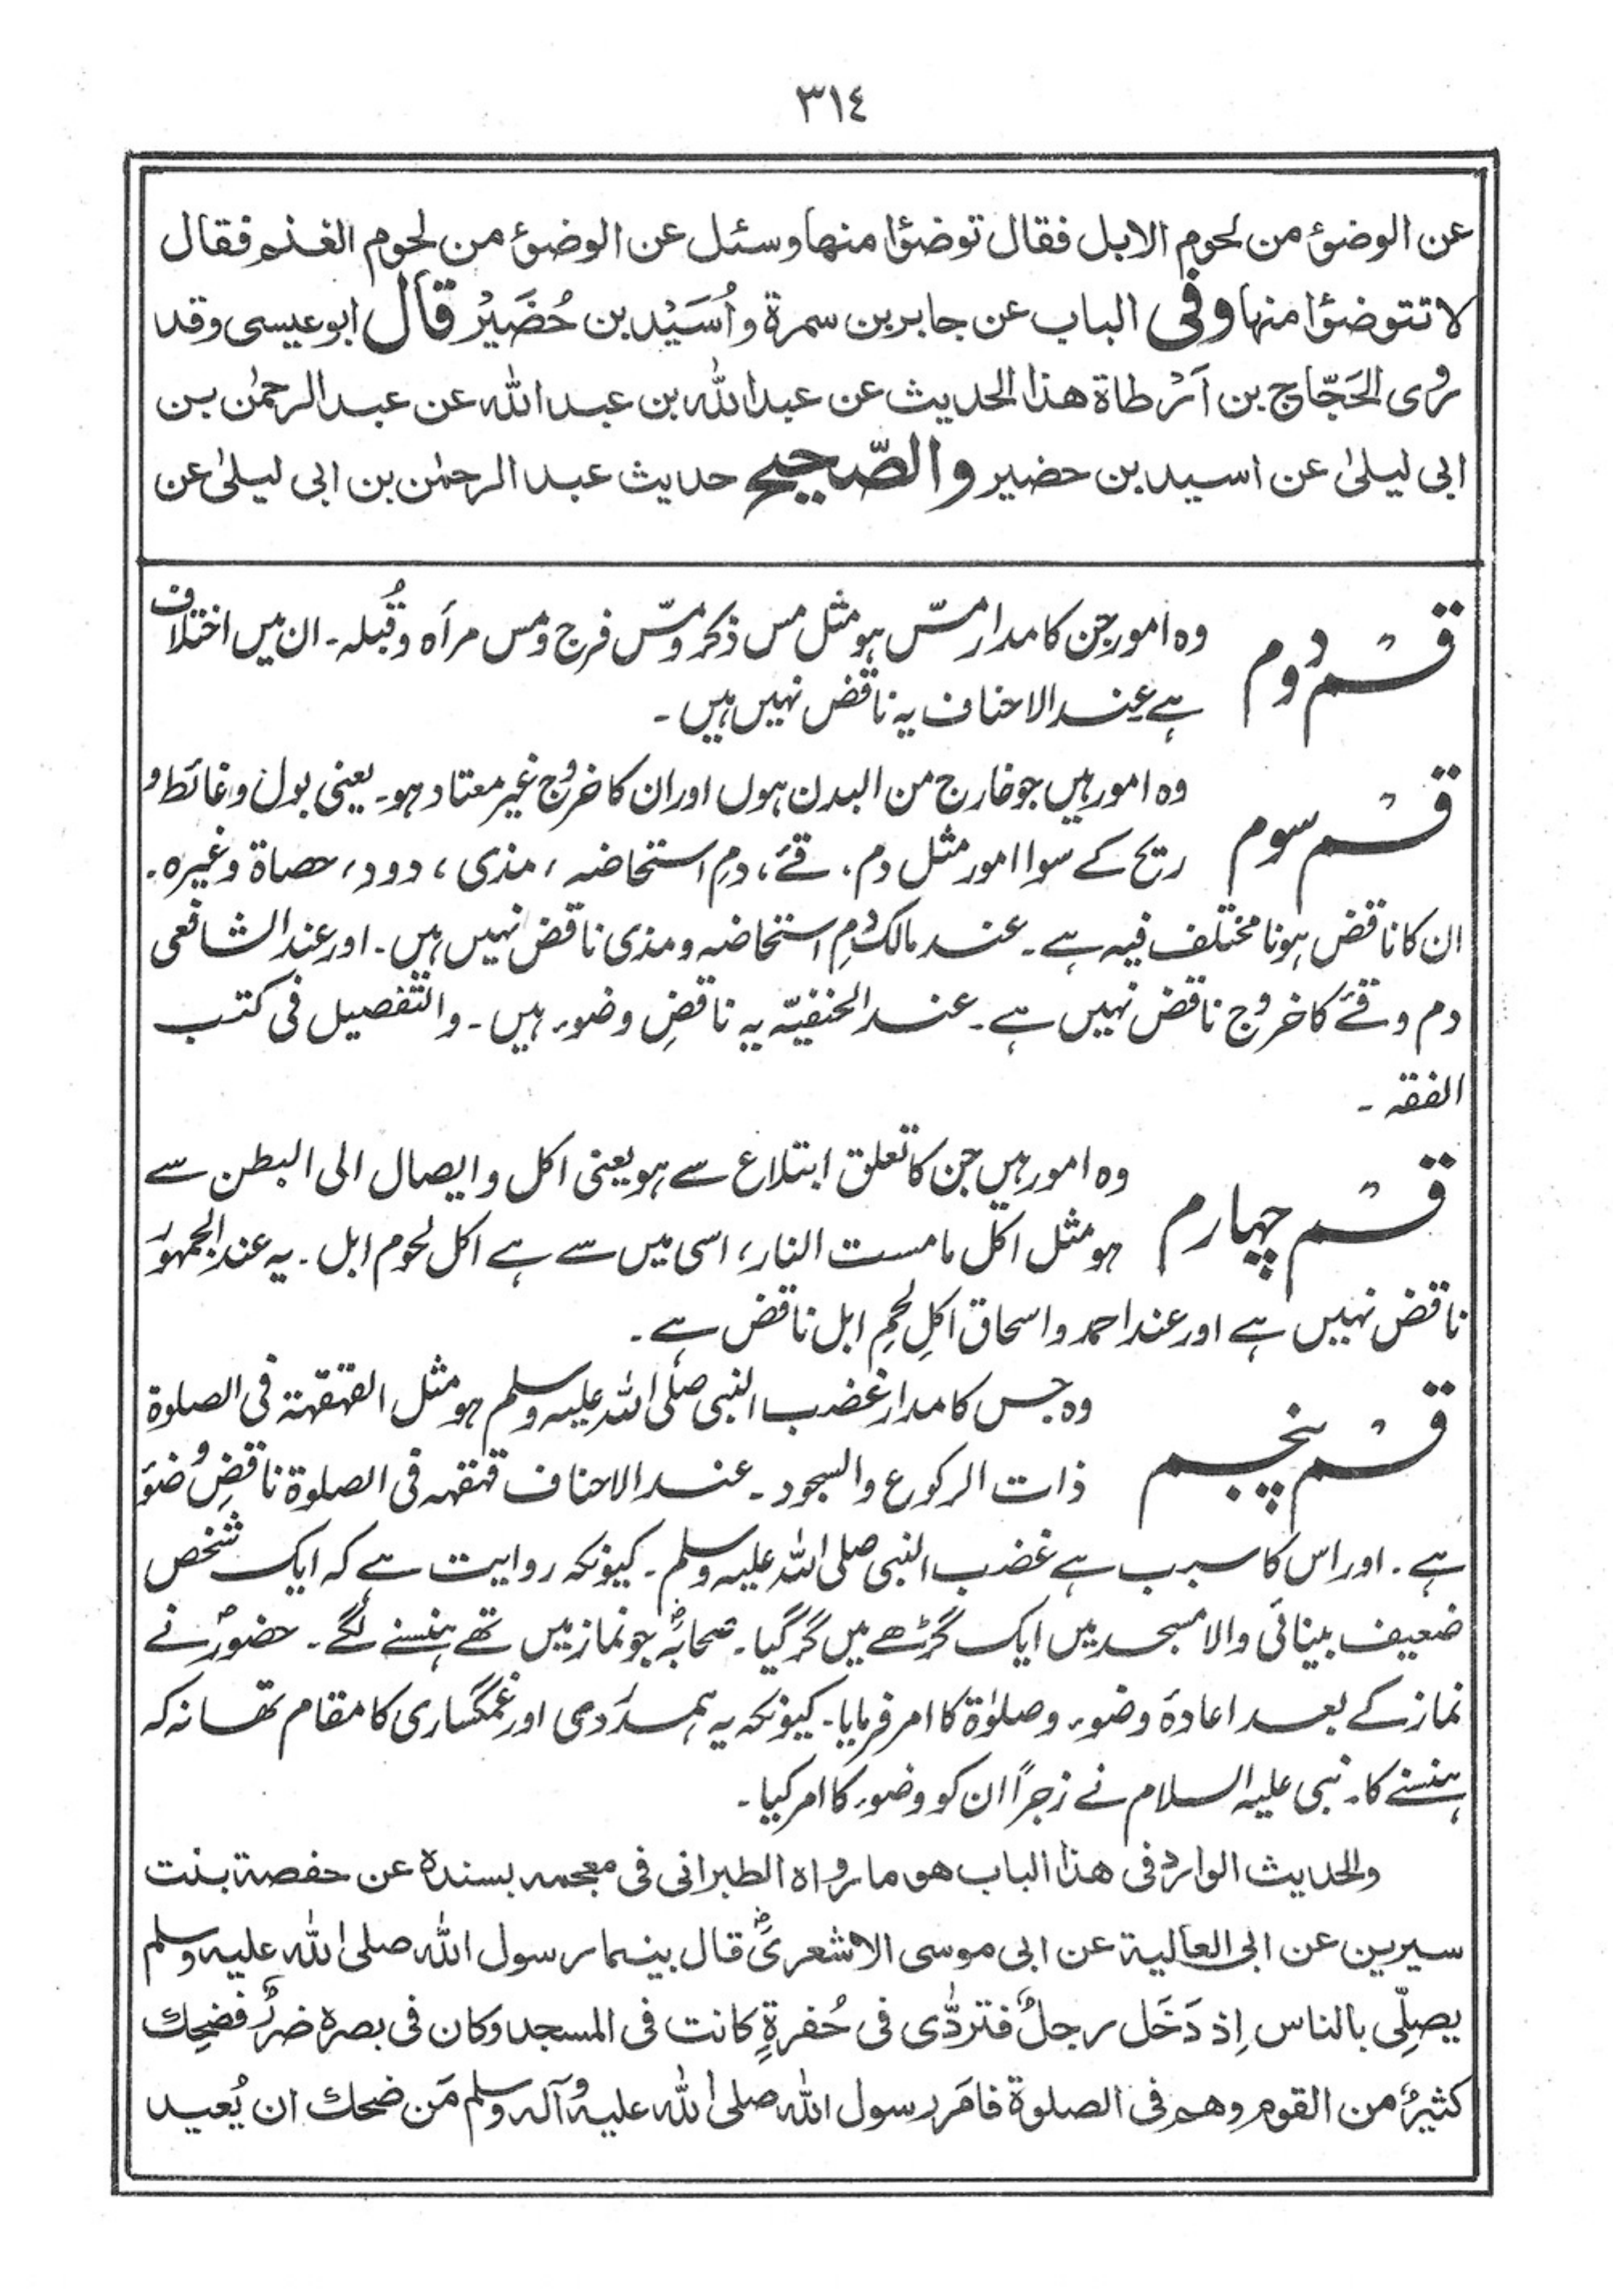 ٣١٤
عن الوضوٴ من لحوم الابل فقال توضؤا منها وسئل عن الوضوٴ من لحوم الغنم فقال
لا تتوضؤا منها وفی الباب عن جابر بن سمرة و اُسَیْد بن حُضَیْر قال ابو عیسی وقد
روی الحَجّاج بن اَرْطاة هذا الحدیث عن عبد الله بن عبد الله عن عبد الرحمٰن بن
ابی لیلیٰ عن اسید بن حضیر والصّحیح حدیث عبد الرحمٰن بن ابی لیلیٰ عن
قسم دوم وہ امور جن کا مدار مسّ ہو مثل مس ذکر ومسّ فرج ومس مرأہ وقُبلہ۔ ان میں اختلاف
ہے عند الاحناف یہ ناقض نہیں ہیں۔
قسم سوم وہ امور ہیں جو خارج من البدن ہوں اور ان کا خروج غیر معتاد ہو۔ یعنی بول و غائط و
ریح کے سوا امور مثل دم، قے، دمِ استحاضہ، مذی، دود، حصاۃ وغیرہ۔
ان کا ناقض ہونا مختلف فیہ ہے۔ عند مالکؒ دمِ استحاضہ و مذی ناقض نہیں ہیں۔ اور عند الشافعی
دم و قے کا خروج ناقض نہیں ہے۔ عند الحنفیّہ یہ ناقضِ وضوء ہیں۔ والتفصیل فی کتب
الفقہ۔
قسم چہارم وہ امور ہیں جن کا تعلق ابتلاع سے ہو یعنی اکل و ایصال الی البطن سے
ہو مثل اکل ما مست النار، اسی میں سے ہے اکل لحوم ابل۔ یہ عند الجمہور
ناقض نہیں ہے اور عند احمد و اسحاق اکلِ لحمِ ابل ناقض ہے۔
قسم پنجم وہ جس کا مدار غضب النبی صلی اللہ علیہ وسلم ہو مثل القہقہۃ فی الصلوۃ
ذات الرکوع والسجود۔ عند الاحناف قہقہہ فی الصلوۃ ناقضِ وضوٴ
ہے۔ اور اس کا سبب ہے غضب النبی صلی اللہ علیہ وسلم۔ کیونکہ روایت ہے کہ ایک شخص
ضعیف بینائی والا مسجد میں ایک گڑھے میں گر گیا۔ صحابہؓ جو نماز میں تھے ہنسنے لگے۔ حضورؐ نے
نماز کے بعد اعادۂ وضوء وصلوٰۃ کا امر فرمایا۔ کیونکہ یہ ہمدردی اور غمگساری کا مقام تھا نہ کہ
ہنسنے کا۔ نبی علیہ السلام نے زجراً ان کو وضوء کا امر کیا۔
والحدیث الوارد فی هذا الباب هو ما رواه الطبرانی فی معجمه بسنده عن حفصة بنت
سیرین عن ابی العالیة عن ابی موسی الاشعریؓ قال بینما رسول الله صلی الله علیه وسلم
یصلِّی بالناس اِذ دَخَل رجلٌ فتردّٰی فی حُفرةٍ کانت فی المسجد وکان فی بصره ضررٌ فضحِك
کثیرٌ من القوم وهم فی الصلوة فامَر رسول الله صلی الله علیه وآله وسلم مَن ضحك ان یُعید